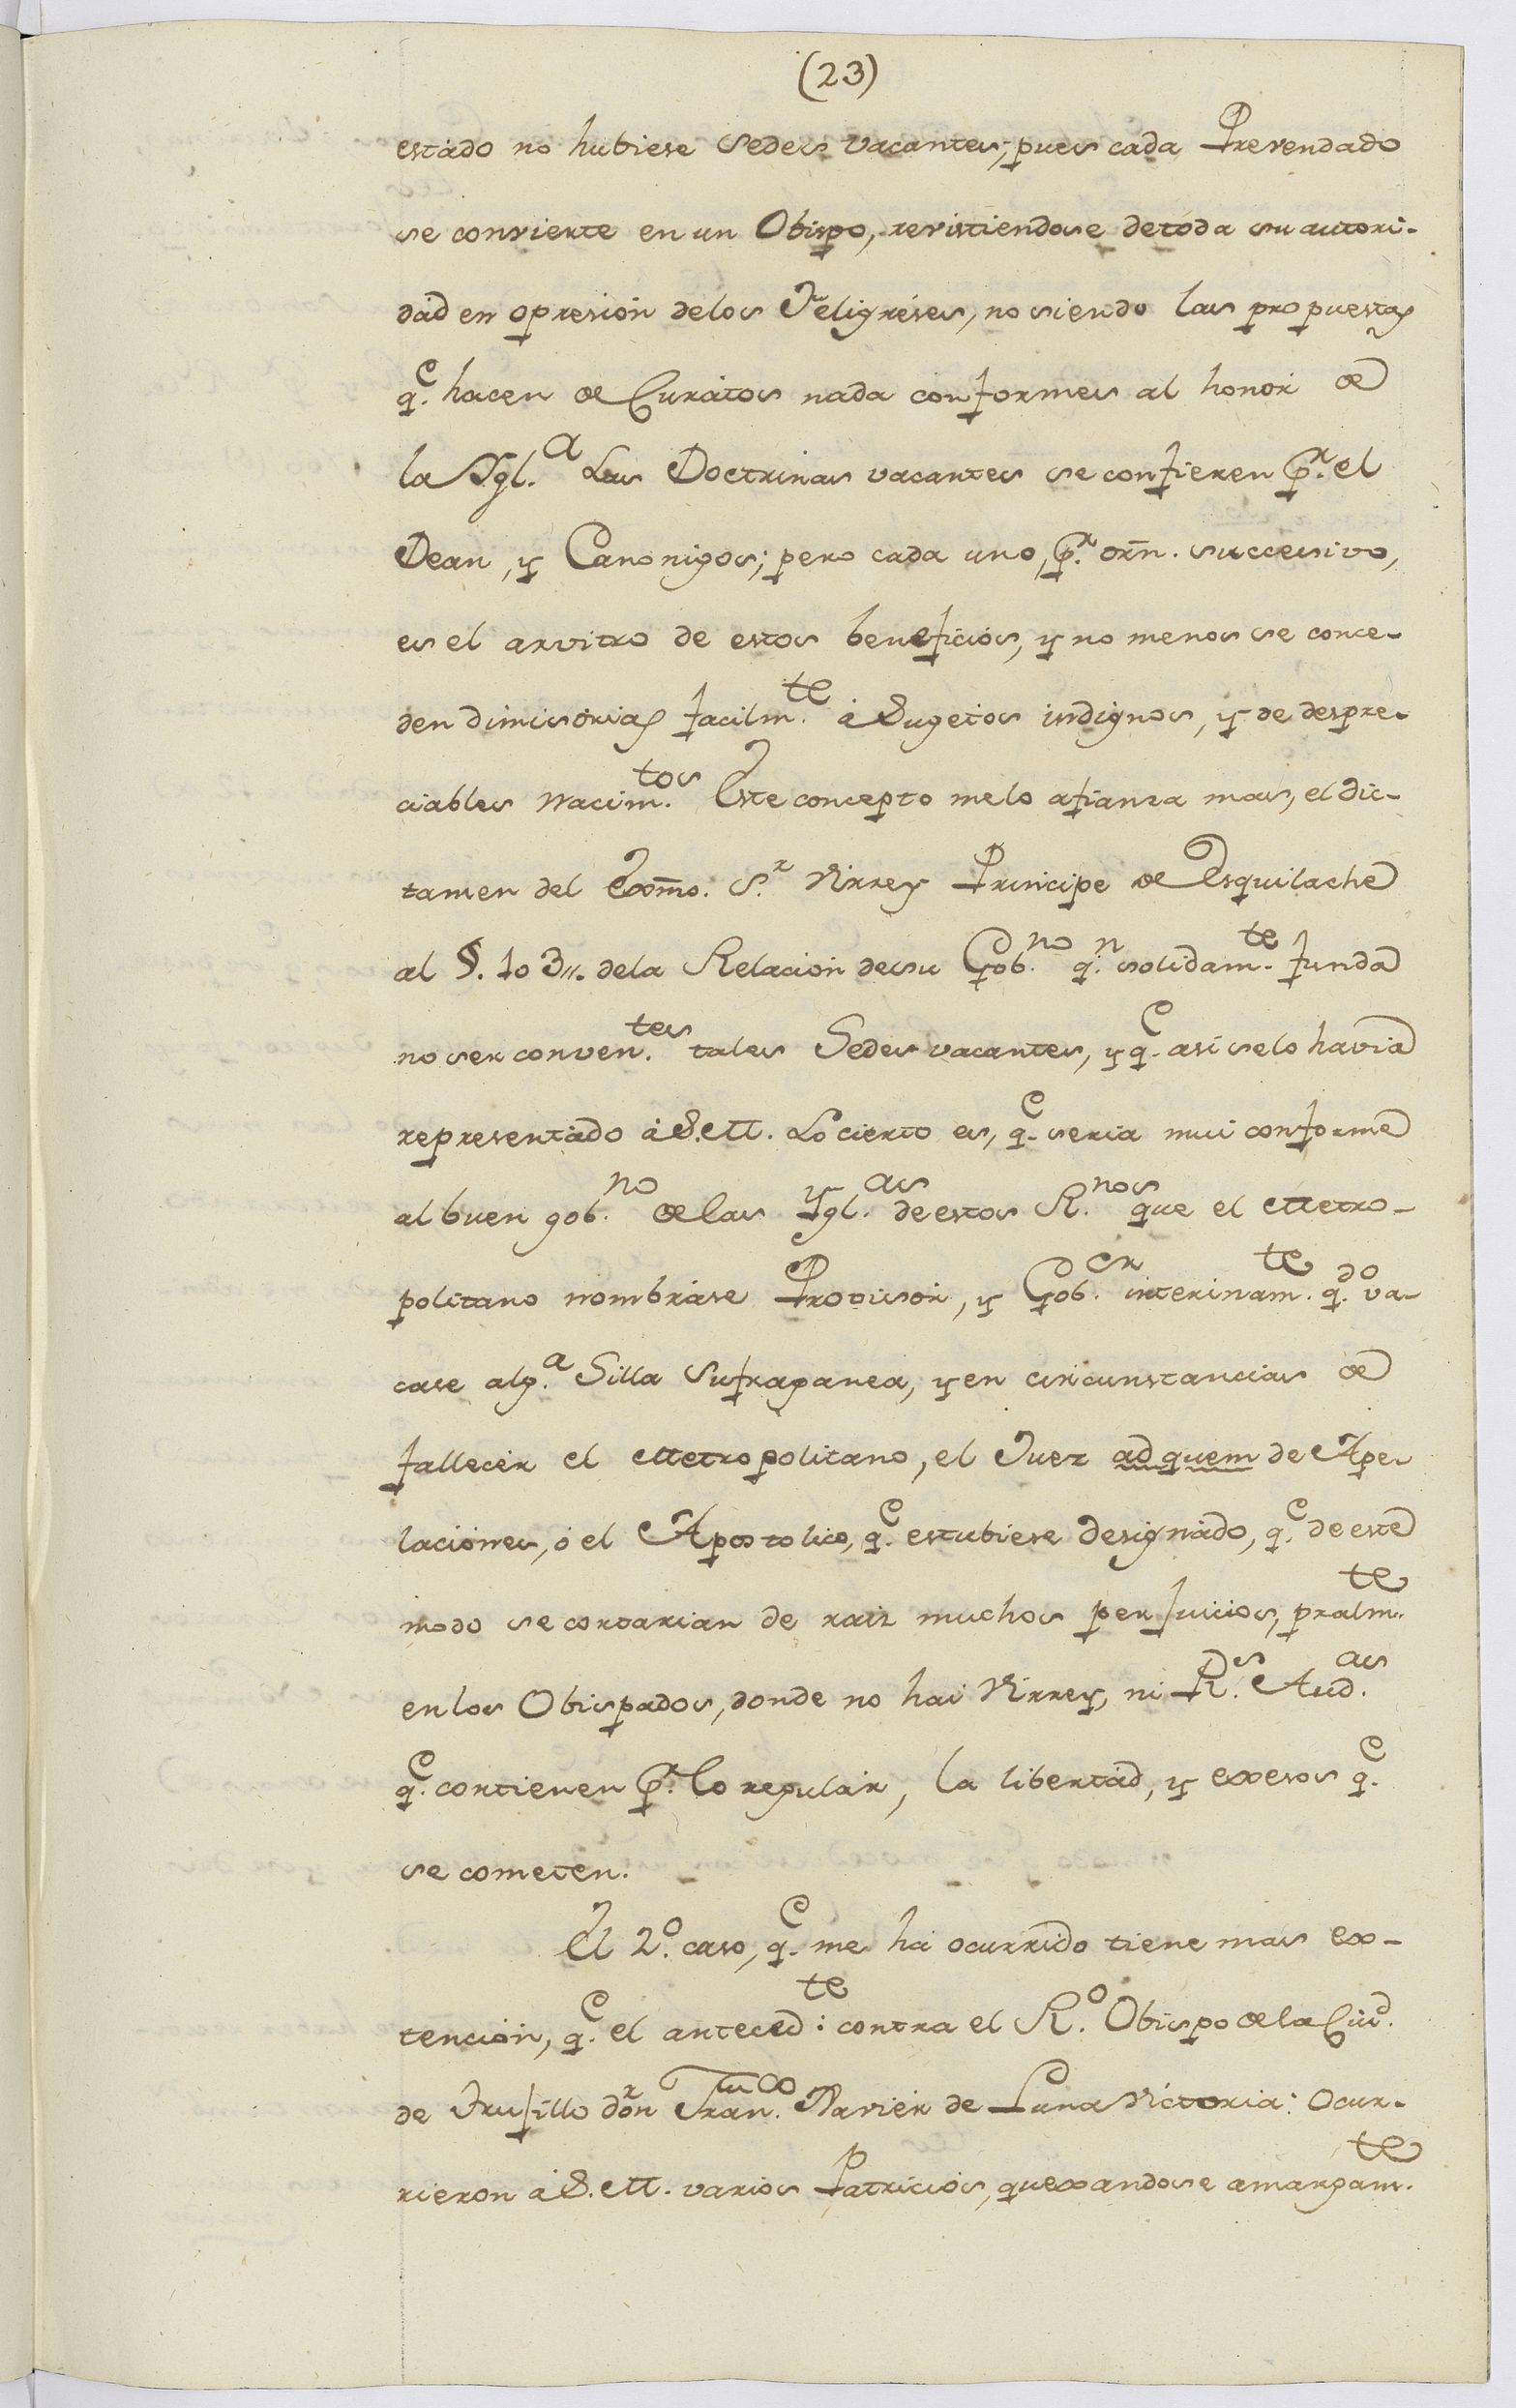 (23)
estado no hubiese Sedes vacantes; pues cada Prevendado
se convierte en un Obispo, revistiendose detoda su autori-
dad en opresion delos Feligreses, no siendo las propuestas
q.e hacen de Curatos nada conformes al honor de
la Ygl.a Las Doctrinas vacantes se confieren p.r el
Dean, y Canonigos; pero cada uno, p.r orñ. successivo,
es el arvitro de estos beneficios, y no menos se conce-
den dimisorias facilm.te á Sugetos indignos, y de despre-
ciables nacim.tos Este concepto melo afianza mas, el dic-
tamen del Exmo. S.r Virrey Principe de Esquilache
al §. 10 3,,. dela Relacion desu Gob.no q.n solidam.te funda
no ser conven.tes tales Sedes vacantes, y q.e asi selo havia
representado á S.M. Lo cierto es, q.e seria mui conforme
al buen gob.no de las Ygl.as deestos R.nos que el Metro-
politano nombrase Provisor, y Gob.er interinam.te q.do va-
case alg.a Silla Sufraganea, y en circunstancias de
fallecer el Metropolitano, el Juez ad quem de Ape-
laciones, ó el Apostolico, q.e estubiese designado, q.e de este
modo se cortarian de raiz muchos perjuicios, pralm.te
enlos Obispados, donde no hai Virrey, ni R.s Aud.as
q.e contienen p.r lo regular, la libertad, y exesos q.e
se cometen.
El 2.o caso, q.e me ha ocurrido tiene mas ex-
tencion, q.e el anteced.te: contra el R.o Obispo dela Ciud.
de Trujillo don Fran.co Xavier de Luna Victoria: Ocur-
rieron á S.M. varios Patricios, quexandose amargam.te